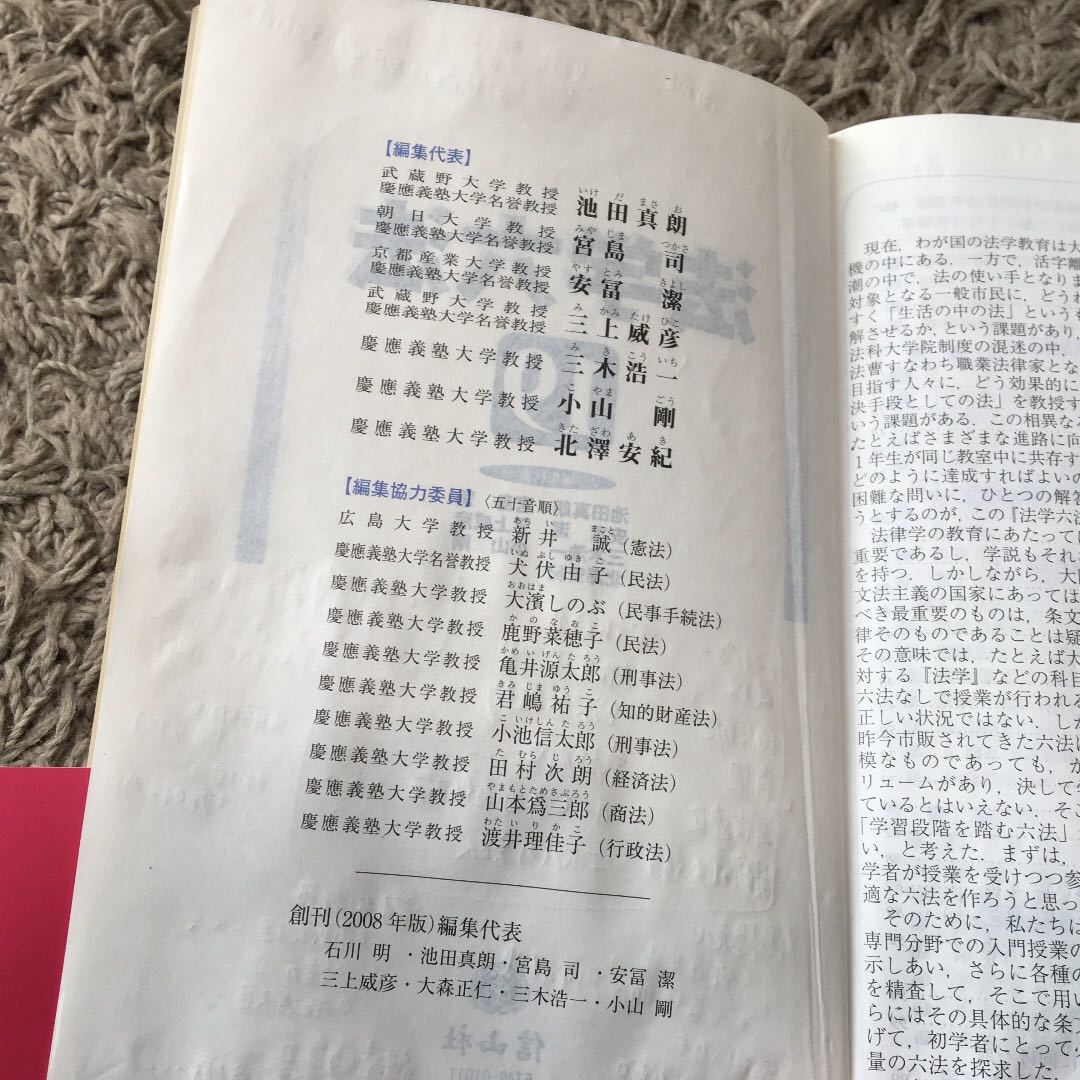 【編集代表】
武蔵野大学教授
慶應義塾大学名誉教授 池田真朗
いけ だ まさ お
朝日大学教授
慶應義塾大学名誉教授 宮島 司
みや じま つかさ
京都産業大学教授
慶應義塾大学名誉教授 安冨 潔
やす とみ きよし
武蔵野大学教授
慶應義塾大学名誉教授 三上威彦
み かみ たけ ひこ
慶應義塾大学教授 三木浩一
み き こう いち
慶應義塾大学教授 小山 剛
こ やま ごう
慶應義塾大学教授 北澤安紀
きた ざわ あ き
【編集協力委員】〈五十音順〉
広島大学教授 新井 誠(憲法)
あら い まこと
慶應義塾大学名誉教授 犬伏由子(民法)
いぬ ぶし ゆき こ
慶應義塾大学教授 大濱しのぶ(民事手続法)
おおはま
慶應義塾大学教授 鹿野菜穂子(民法)
か の な お こ
慶應義塾大学教授 亀井源太郎(刑事法)
かめ い げん た ろう
慶應義塾大学教授 君嶋祐子(知的財産法)
きみ じま ゆう こ
慶應義塾大学教授 小池信太郎(刑事法)
こ いけ しん た ろう
慶應義塾大学教授 田村次朗(経済法)
た むら じ ろう
慶應義塾大学教授 山本爲三郎(商法)
やまもとためさぶろう
慶應義塾大学教授 渡井理佳子(行政法)
わた い り か こ
創刊(2008年版)編集代表
石川 明・池田真朗・宮島 司・安冨 潔
三上威彦・大森正仁・三木浩一・小山 剛
現在,わが国の法学教育は大
機の中にある.一方で,活字離
潮の中で,法の使い手となりま
対象となる一般市民に,どうわ
すく『生活の中の法』というも
解させるか,という課題があり,
法科大学院制度の混迷の中,
法曹すなわち職業法律家とな
目指す人々に,どう効果的に
決手段としての法」を教授す
いう課題がある.この相異な
たとえばさまざまな進路に向
1年生が同じ教室中に共存す
どのように達成すればよいの
困難な問いに,ひとつの解答
うとするのが,この『法学六法
法律学の教育にあたっては
重要であるし,学説もそれ
を持つ.しかしながら,大
文法主義の国家にあっては
べき最重要のものは,条文
律そのものであることは疑
その意味では,たとえば大
対する『法学』などの科目
六法なしで授業が行われる
正しい状況ではない.しか
昨今市販されてきた六法に
模なものであっても,か
リュームがあり,決して
ているとはいえない.そこ
「学習段階を踏む六法」
い,と考えた.まずは,
学者が授業を受けつつ参
適な六法を作ろうと思っ
そのために,私たちは
専門分野での入門授業の
示しあい,さらに各種の
を精査して,そこで用い
らにはその具体的な条文
げて,初学者にとって
量の六法を探求した.